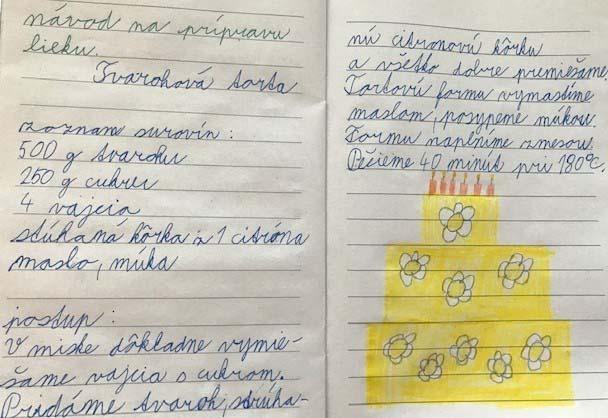 návod na prípravu
lieku.
Tvarohová torta
zoznam surovín:
500 g tvarohu
250 g cukru
4 vajcia
stúhaná kôrka z 1 citróna
maslo, múka
postup:
V miske dôkladne vymie-
šame vajcia s cukrom.
Pridáme tvaroh, strúha-
nú citronovú kôrku
a všetko dobre premiešame.
Tortovú formu vymastíme
maslom, posypeme múkou.
Formu naplníme zmesou.
Pečieme 40 minút pri 180°C.